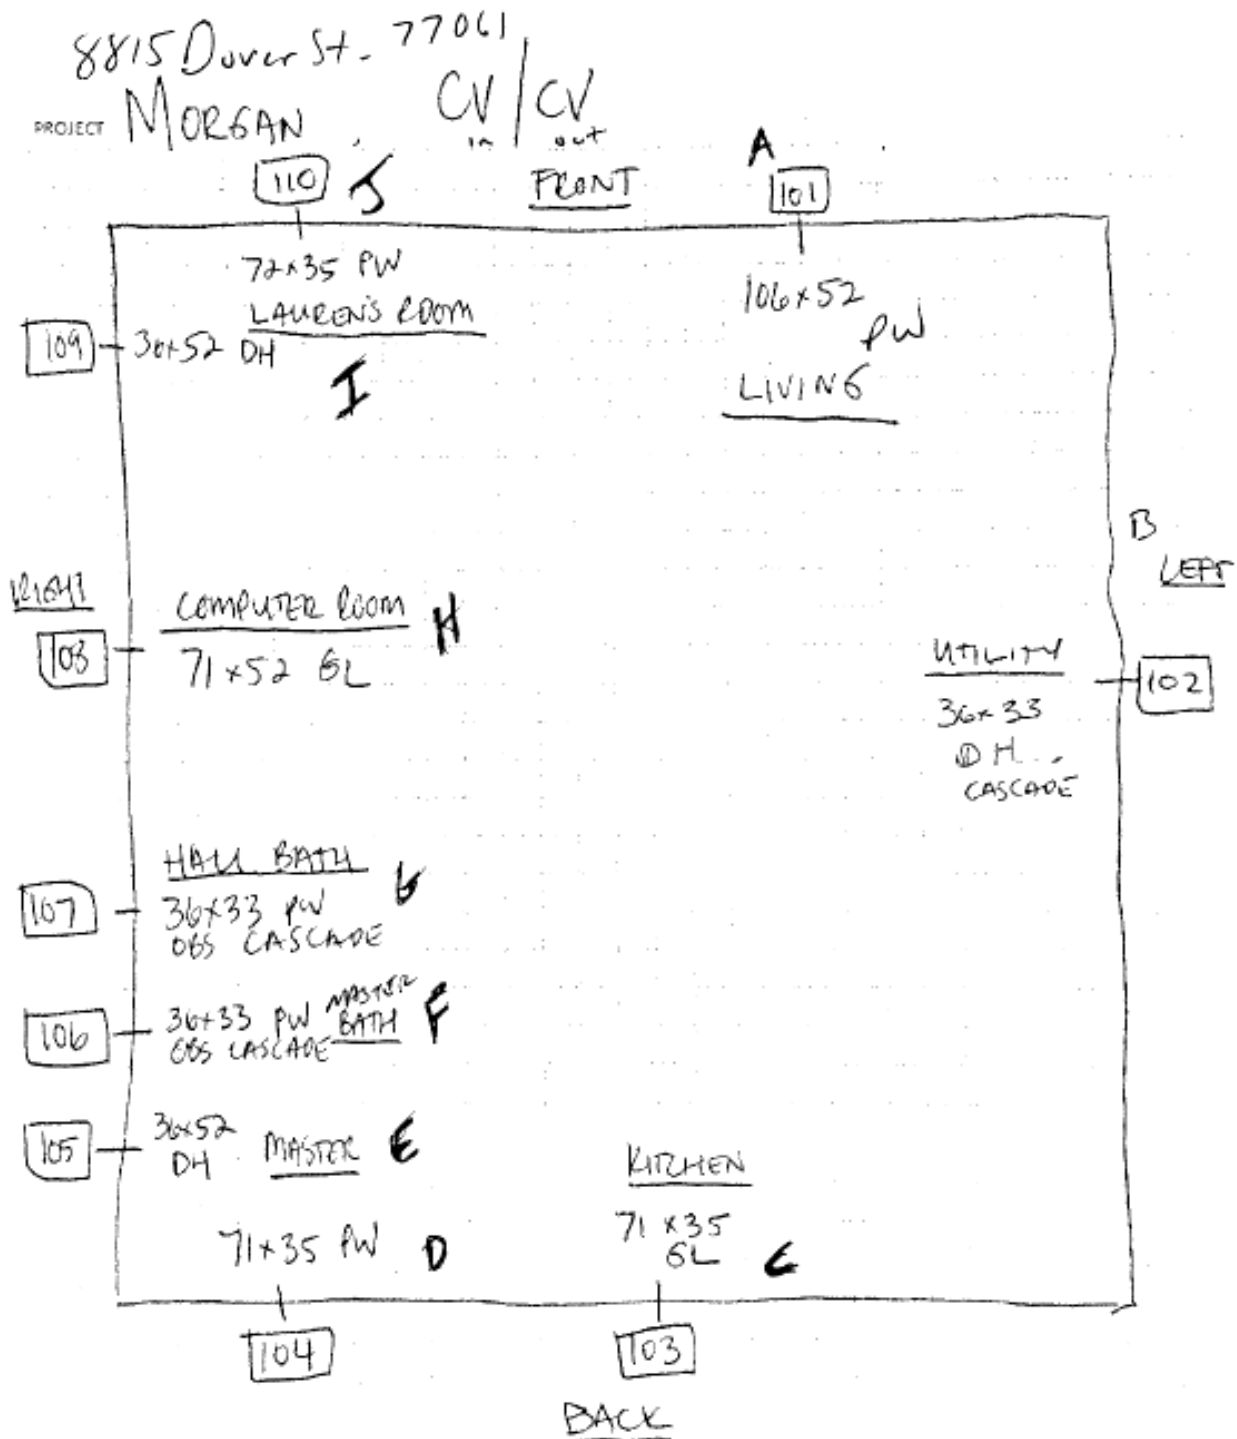 8815 Dover St. 77061
PROJECT MORGAN CV in / CV out
110 J FRONT A 101
72x35 PW
LAUREN'S ROOM
109 36x52 DH
I
106x52
PW
LIVING
B
LEFT
RIGHT
COMPUTER ROOM H
108 71x52 GL
UTILITY
102
36x33
DH
CASCADE
HALL BATH G
107 36x33 PW
OBS CASCADE
106 36x33 PW MASTER BATH F
OBS CASCADE
105 36x52
DH MASTER E
KITCHEN
71x35 PW D
71x35
GL C
104 103
BACK